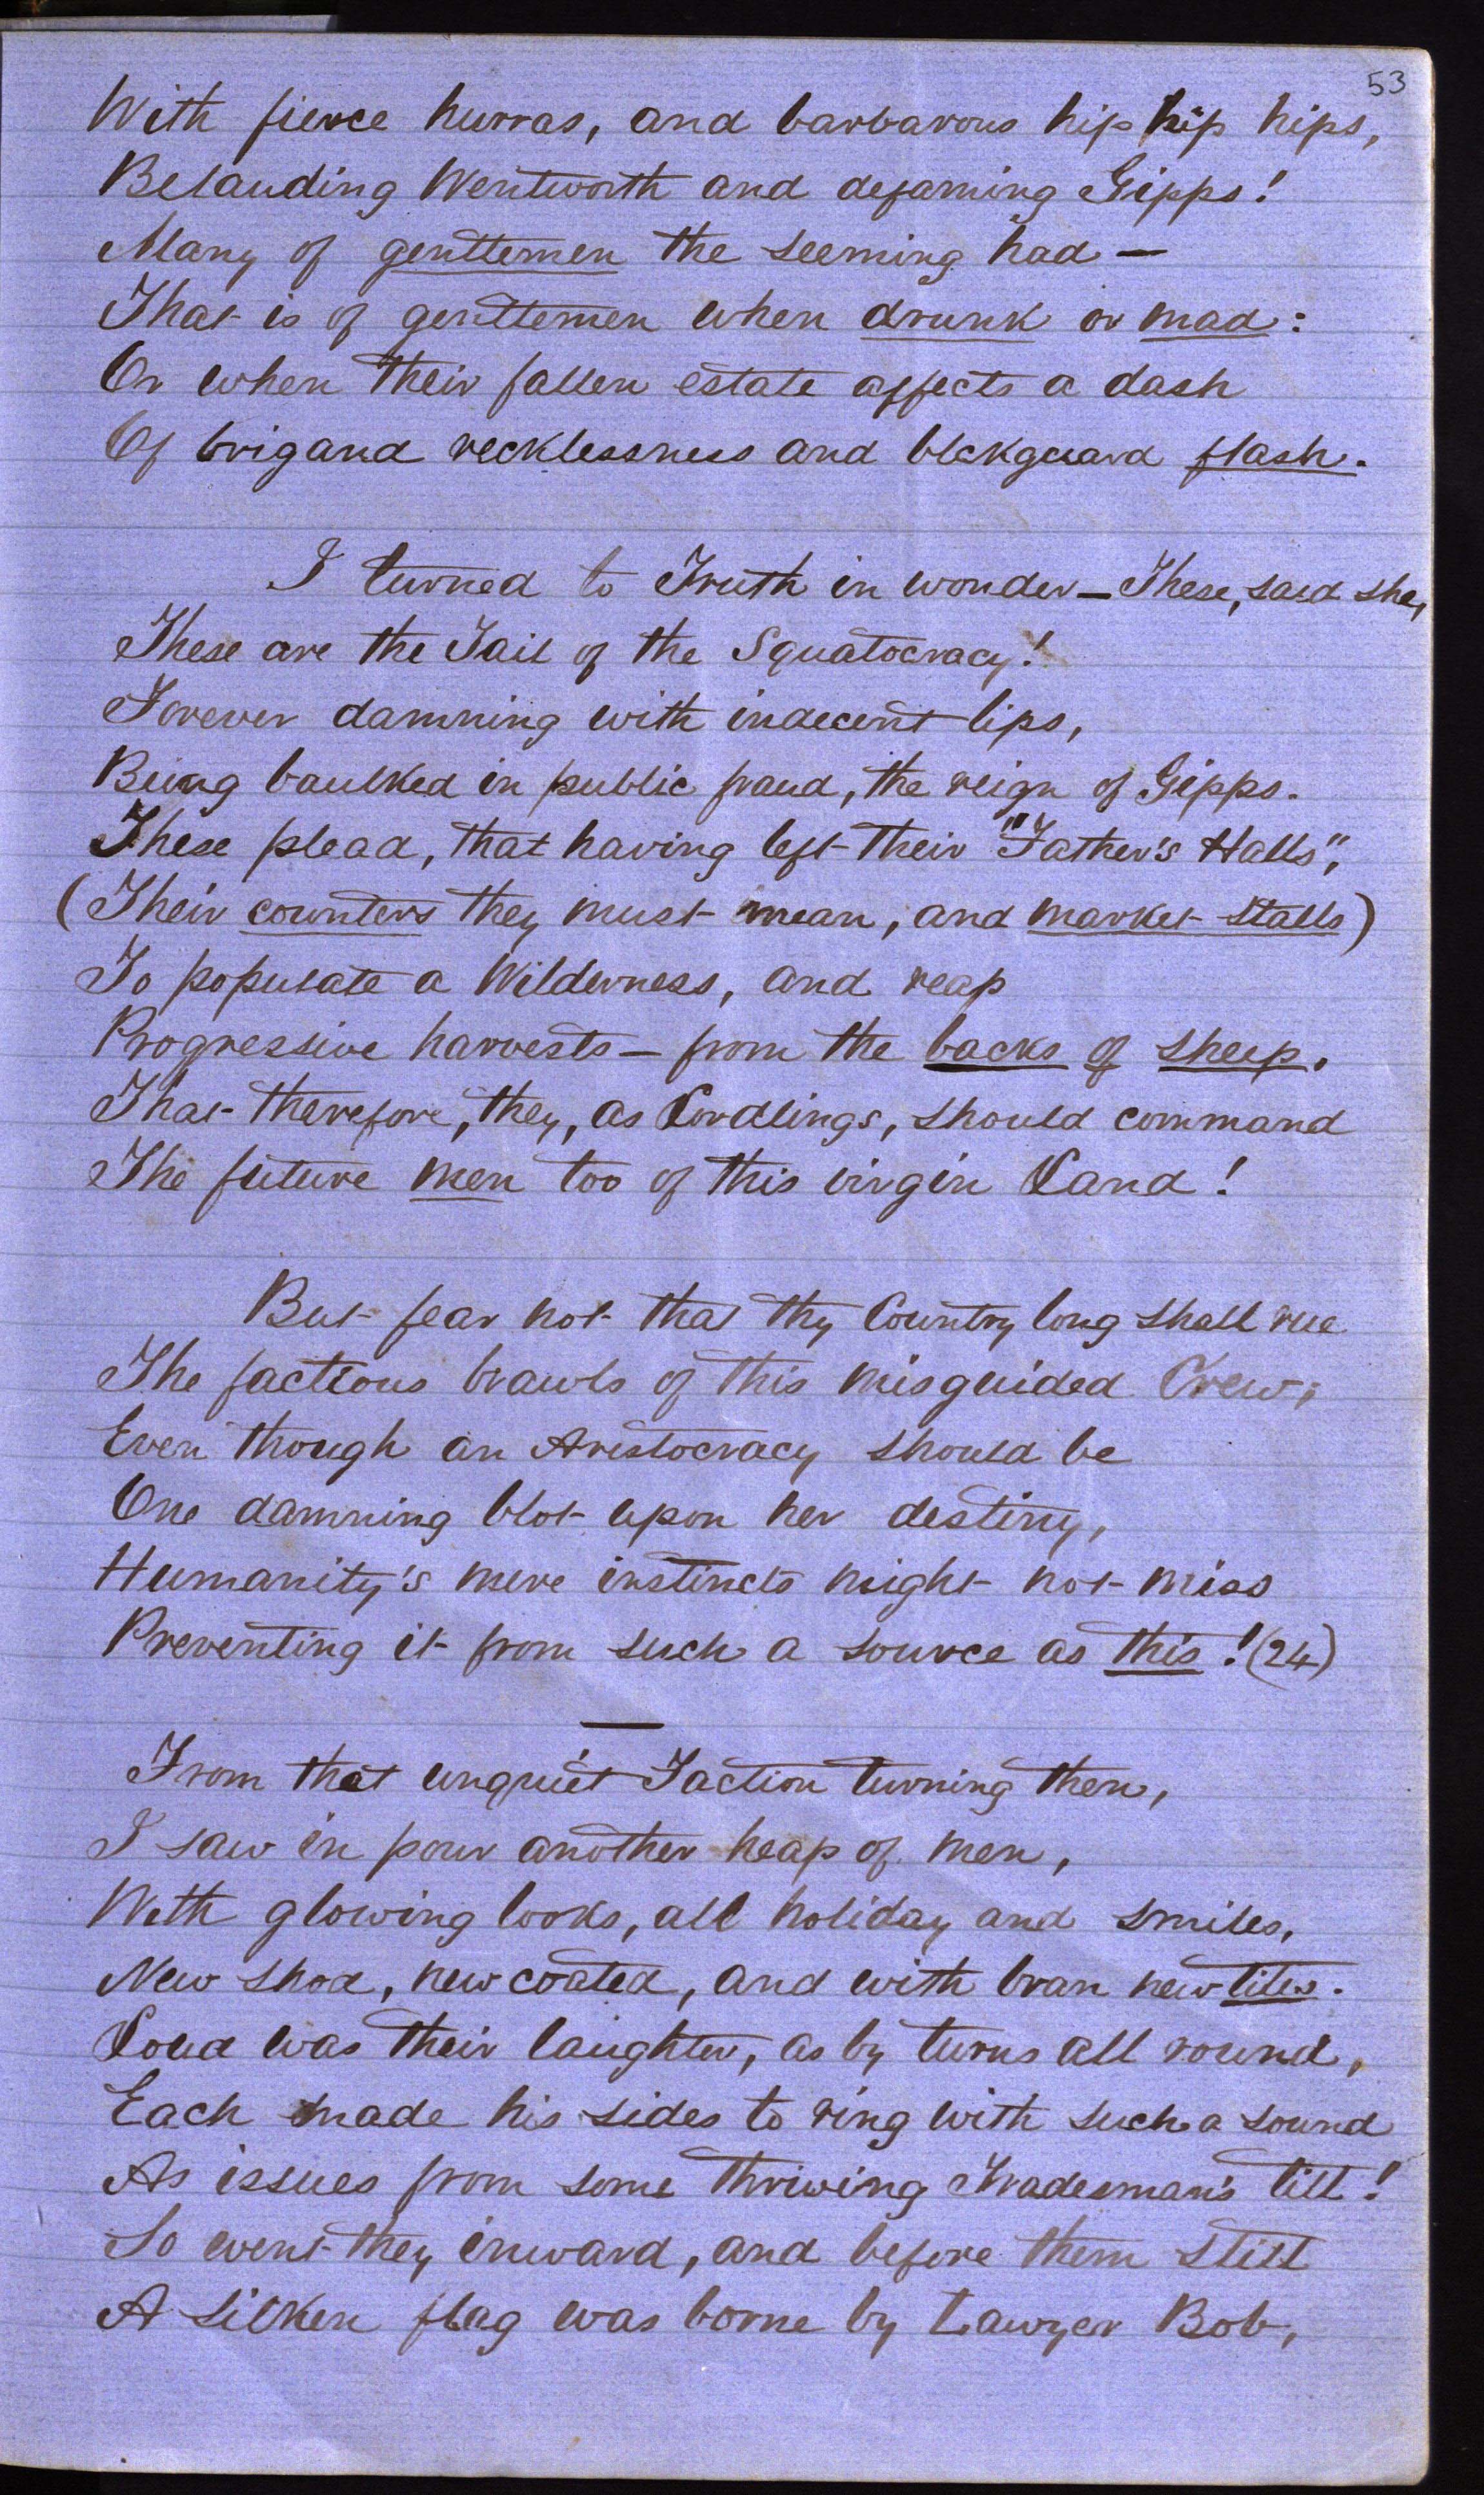 53
With fierce hurras, and barbarous hip hip hips,
Belauding Wentworth and defaming Gipps!
Many of gentlemen the seeming had —
That is of gentlemen when drunk or mad:
Or when their fallen estate affects a dash
Of brigand recklessness and blckguard flash.
I turned to Truth in wonder — These, said she,
These are the Tail of the Squatocracy!
Forever damning with indecent lips,
Being baulked in public fraud, the reign of Gipps.
These plead, that having left their "Father's Halls",
(Their counters they must mean, and market stalls)
To populate a Wilderness, and reap
Progressive harvests — from the backs of sheep.
That therefore, they, as Lordlings, should command
The future men too of this virgin Land!
But fear not that thy Country long shall rue
The factious brawls of this misguided Crew;
Even though an Aristocracy should be
One damning blot upon her destiny,
Humanity's mere instincts might not miss
Preventing it from such a source as this! (24)
From that unquiet Faction turning then,
I saw in pour another heap of men,
With glowing looks, all holiday and smiles,
New shod, new coated, and with bran new tiles.
Loud was their laughter, as by turns all round,
Each made his sides to ring with such a sound
As issues from some thriving Tradesman's till!
So went they inward, and before them still
A silken flag was borne by Lawyer Bob,